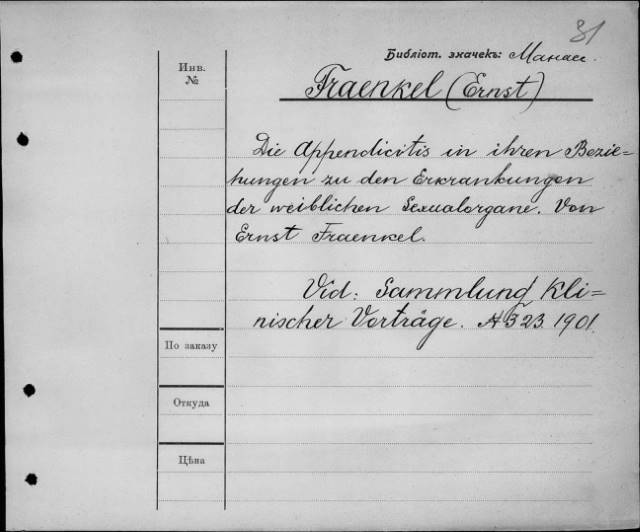 31
Библіот. значекъ: Манас.
Инв.
№
Fraenkel (Ernst)
Die Appendicitis in ihren Bezie=
hungen zu den Erkrankungen
der weiblichen Sexualorgane. Von
Ernst Fraenkel.
Vid: Sammlung kli=
nischer Vorträge. № 323. 1901.
По заказу
Откуда
Цѣна